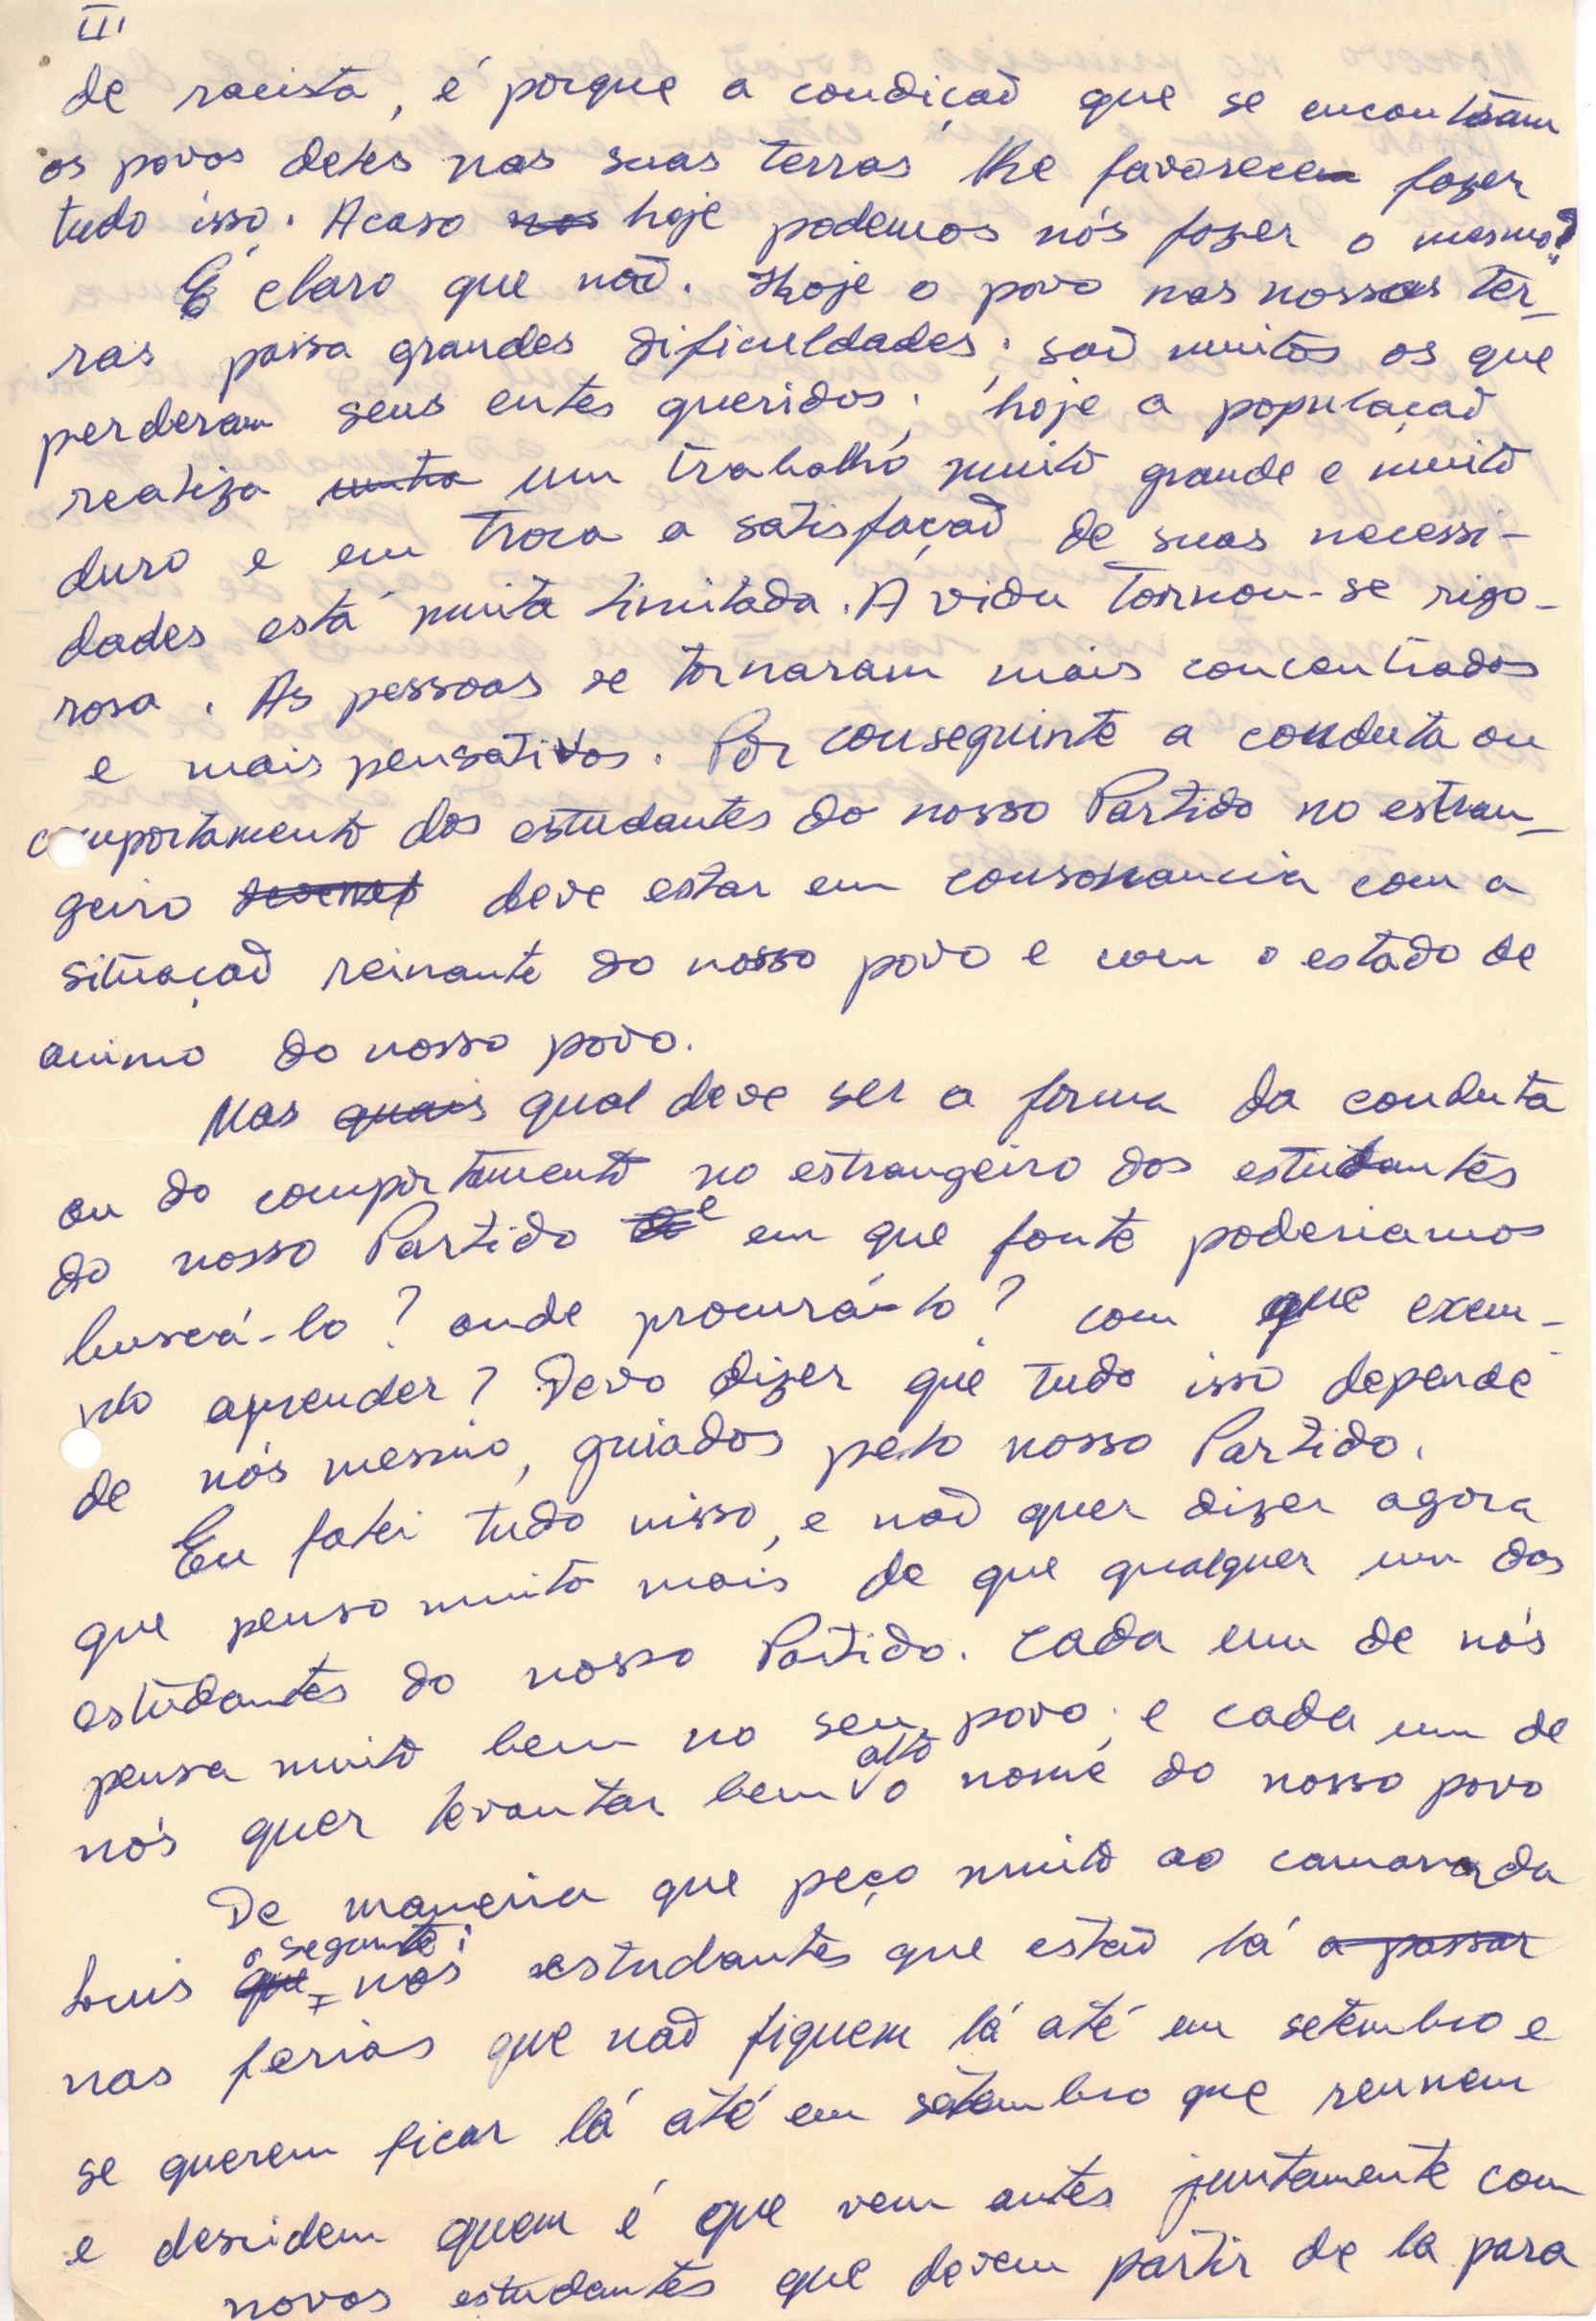 III
de racista, é porque a condiçaõ que se encontram
os povos deles nas suas terras lhe favorecem fazer
tudo isso. Acaso nos hoje podemos nós fazer o mesmo?
É claro que naõ. Hoje o povo nas nossas ter-
ras passa grandes dificuldades, saõ muitos os que
perderam seus entes queridos, hoje a populaçaõ
realiza um trabalho muito grande e muito
duro e em troca a satisfaçaõ de suas necessi-
dades está muita limitada. A vida tornou-se rigo-
rosa. As pessoas se tornaram mais concentrados
e mais pensativos. Por conseguinte a conduta ou
comportamento dos estudantes do nosso Partido no estran-
geiro deve estar em consonancia com a
situaçaõ reinante do nosso povo e com o estado de
animo do nosso povo.
Mas quais qual deve ser a forma da conduta
ou do comportamento no estrangeiro dos estudantes
do nosso Partido e em que fonte poderiamos
buscá-lo? onde procurá-lo? com que exem-
plo aprender? Devo dizer que tudo isso depende
de nós mesmo, guiados pelo nosso Partido.
Eu falei tudo nisso, e naõ quer dizer agora
que penso muito mais de que qualquer um dos
estudantes do nosso Partido. Cada um de nós
pensa muito bem no seu povo, e cada um de
nós quer levantar bem alto o nome do nosso povo
De maneira que peço muito ao camarada
Luis que o segunte: nos estudantes que estaõ lá a passar
nas ferias que naõ fiquem lá até em setembro e
se querem ficar lá até em setembro que reunem
e descidem quem é que vem antes juntamente com
novos estudantes que devem partir de la para